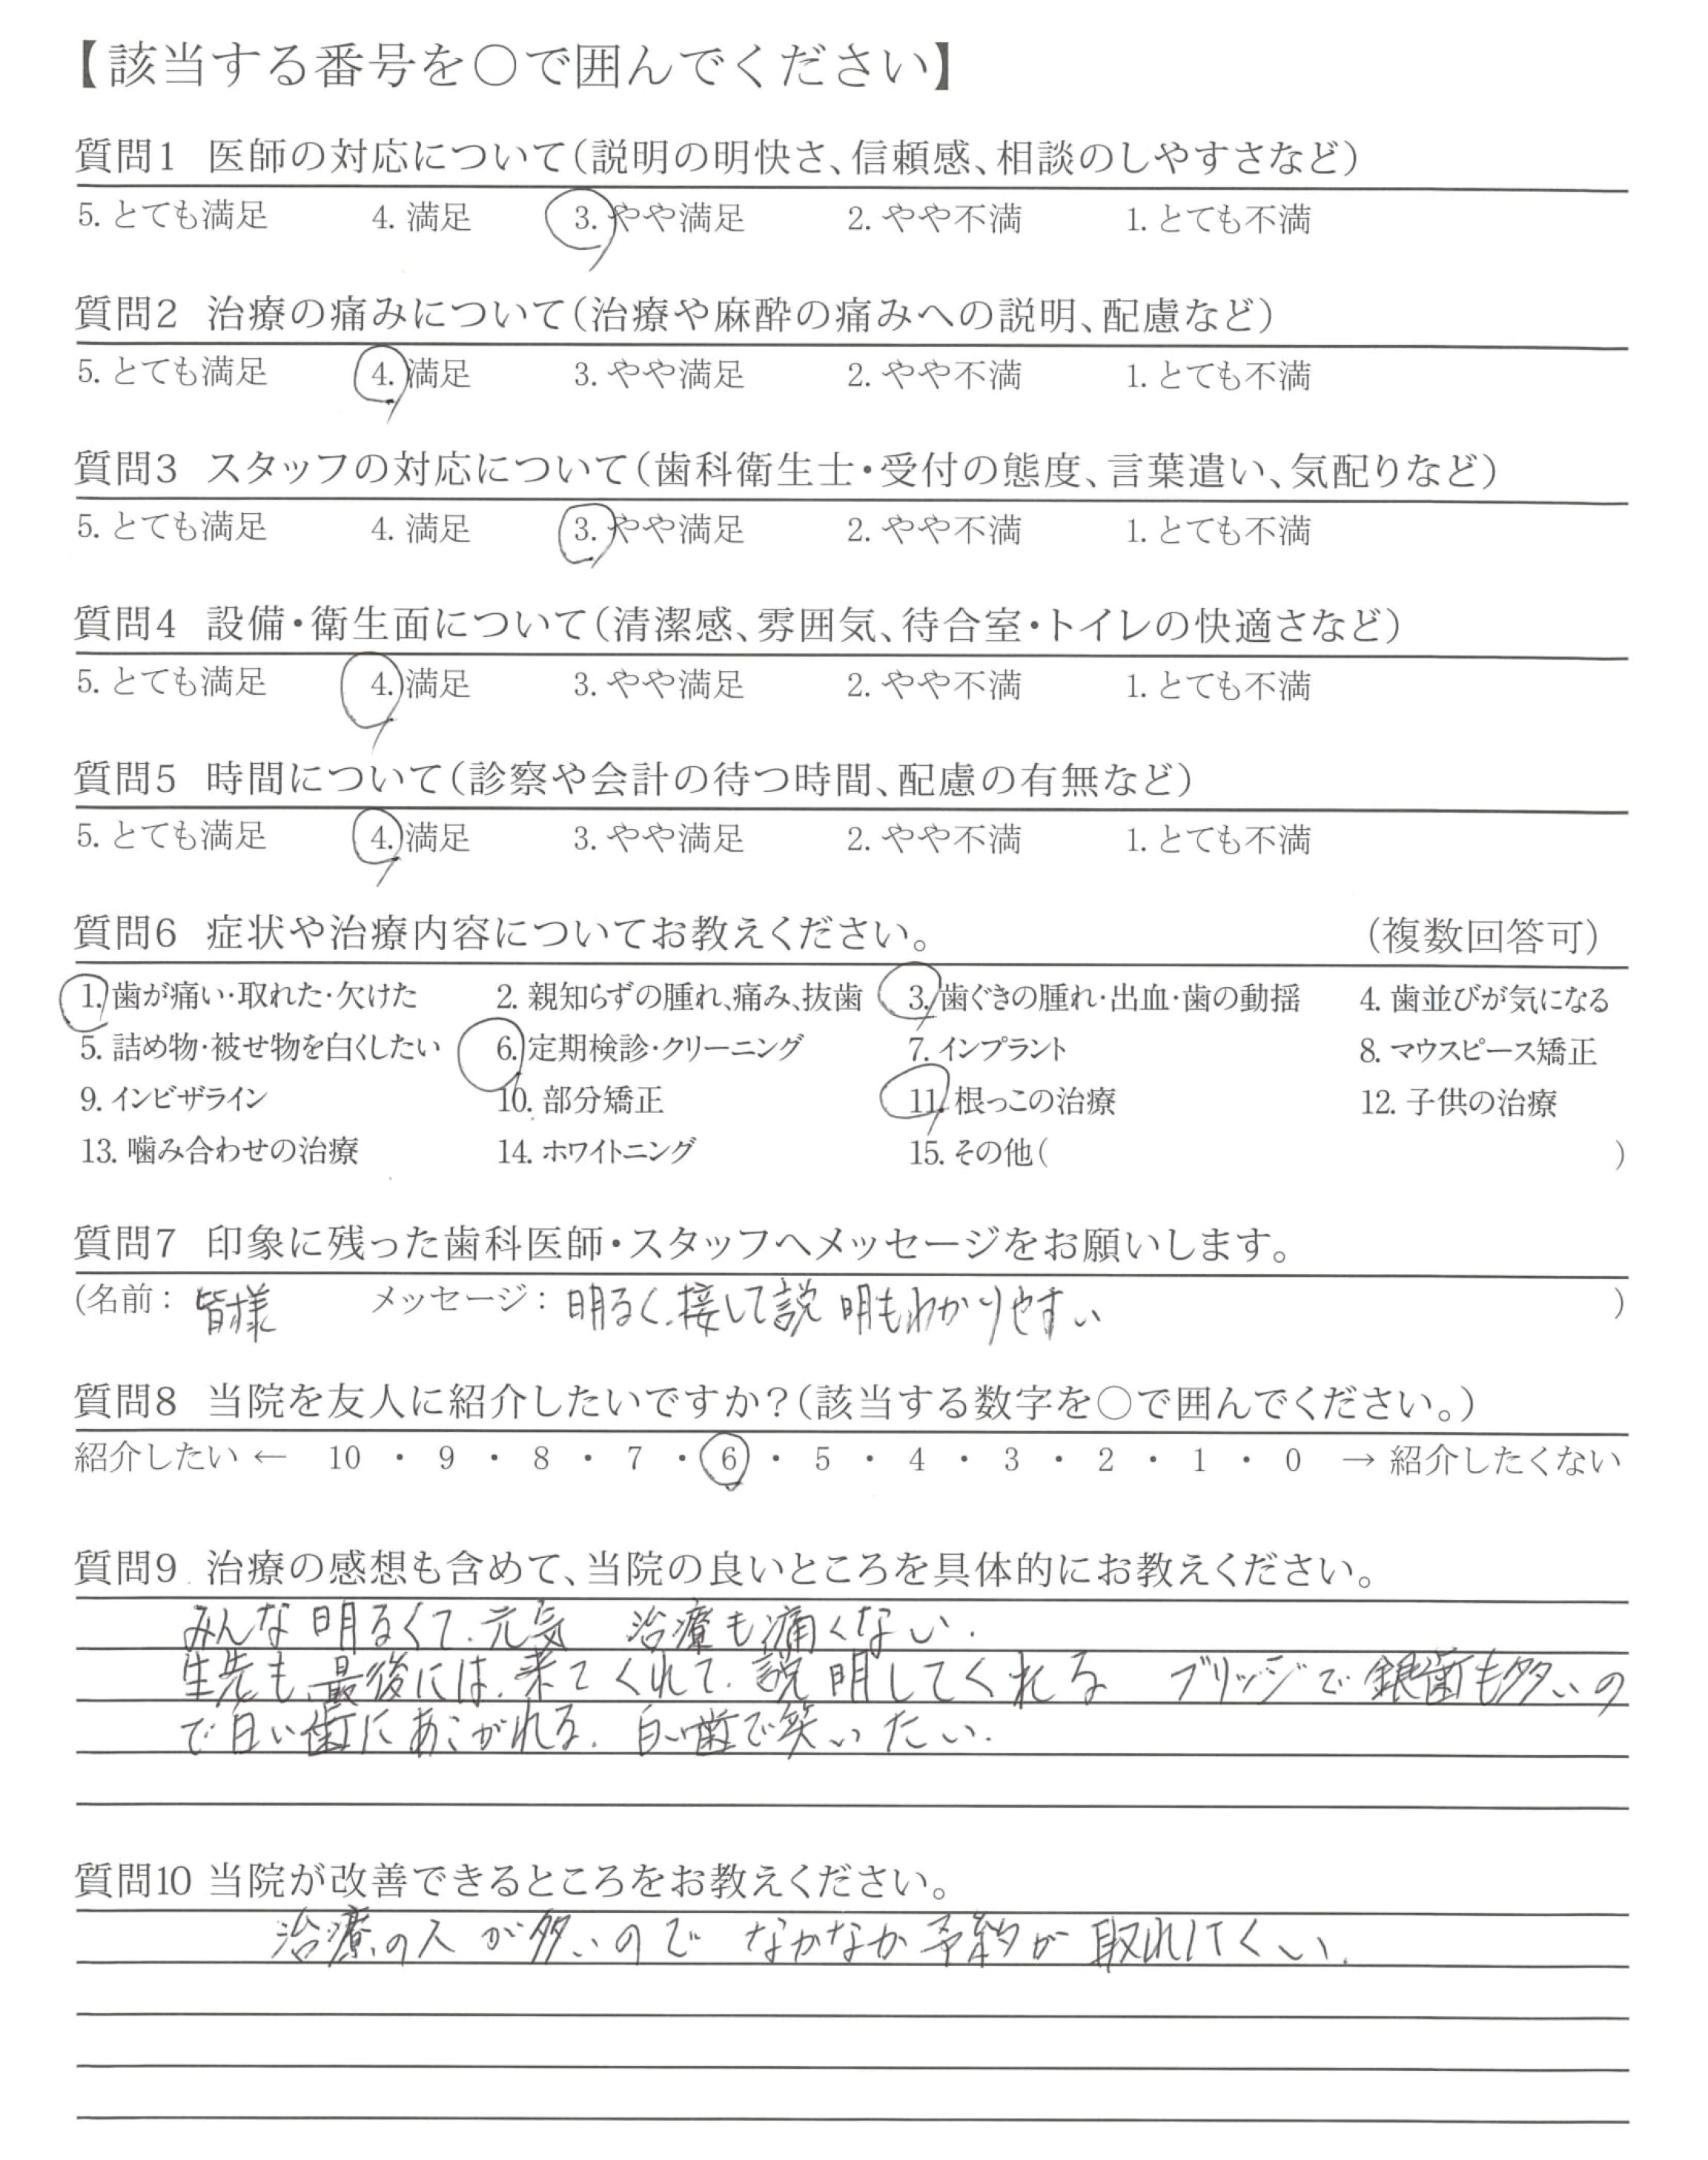 【該当する番号を〇で囲んでください】
質問1 医師の対応について(説明の明快さ、信頼感、相談のしやすさなど)
5. とても満足 4. 満足 3. やや満足 2. やや不満 1. とても不満
質問2 治療の痛みについて(治療や麻酔の痛みへの説明、配慮など)
5. とても満足 4. 満足 3. やや満足 2. やや不満 1. とても不満
質問3 スタッフの対応について(歯科衛生士・受付の態度、言葉遣い、気配りなど)
5. とても満足 4. 満足 3. やや満足 2. やや不満 1. とても不満
質問4 設備・衛生面について(清潔感、雰囲気、待合室・トイレの快適さなど)
5. とても満足 4. 満足 3. やや満足 2. やや不満 1. とても不満
質問5 時間について(診察や会計の待つ時間、配慮の有無など)
5. とても満足 4. 満足 3. やや満足 2. やや不満 1. とても不満
質問6 症状や治療内容についてお教えください。 (複数回答可)
1. 歯が痛い・取れた・欠けた 2. 親知らずの腫れ、痛み、抜歯 3. 歯ぐきの腫れ・出血・歯の動揺 4. 歯並びが気になる
5. 詰め物・被せ物を白くしたい 6. 定期検診・クリーニング 7. インプラント 8. マウスピース矯正
9. インビザライン 10. 部分矯正 11. 根っこの治療 12. 子供の治療
13. 噛み合わせの治療 14. ホワイトニング 15. その他( )
質問7 印象に残った歯科医師・スタッフへメッセージをお願いします。
(名前: 皆様 メッセージ: 明るく、接して説明もわかりやすい )
質問8 当院を友人に紹介したいですか?(該当する数字を〇で囲んでください。)
紹介したい ← 10 ・ 9 ・ 8 ・ 7 ・ 6 ・ 5 ・ 4 ・ 3 ・ 2 ・ 1 ・ 0 → 紹介したくない
質問9 治療の感想も含めて、当院の良いところを具体的にお教えください。
みんな明るくて、元気 治療も痛くない。
生先も、最後には、来てくれて、説明してくれる ブリッジで銀歯も多いの
で白い歯にあこがれる。白い歯で笑いたい。
質問10 当院が改善できるところをお教えください。
治療の人が多いので なかなか予約が取れにくい。